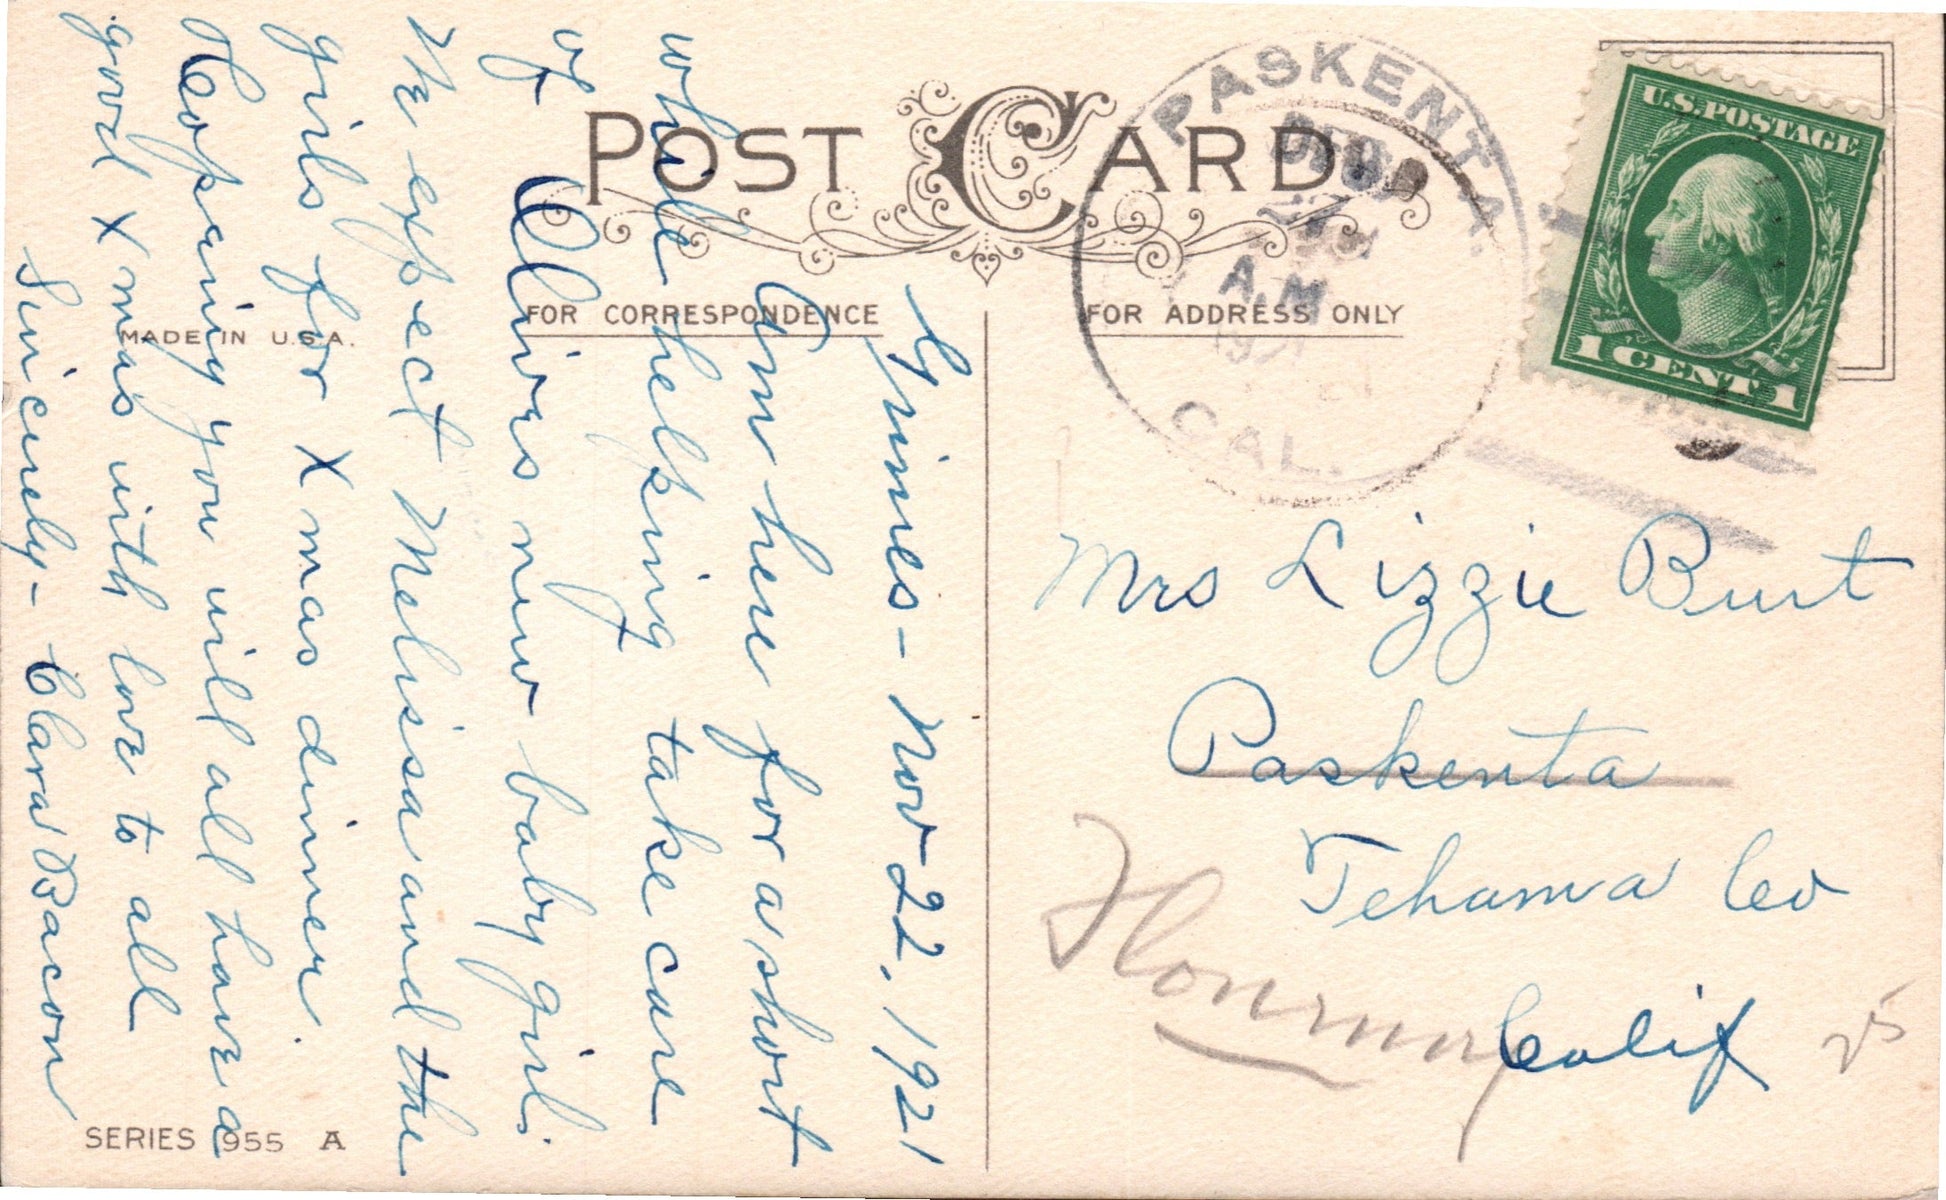 POST CARD
FOR CORRESPONDENCE
FOR ADDRESS ONLY
MADE IN U.S.A.
SERIES 955 A
PASKENTA.
A.M.
CAL.
U.S. POSTAGE
1 CENT 1
Grimes - Nov 22, 1921
Am here for a short
while helping take care
of Olives new baby girl.
We expect Melissa and the
girls for Xmas dinner.
Hoping you will all have a
good Xmas with love to all
Sincerely - Clara Bacon
Mrs Lizzie Burt
Paskenta
Tehama Co
Calif
25